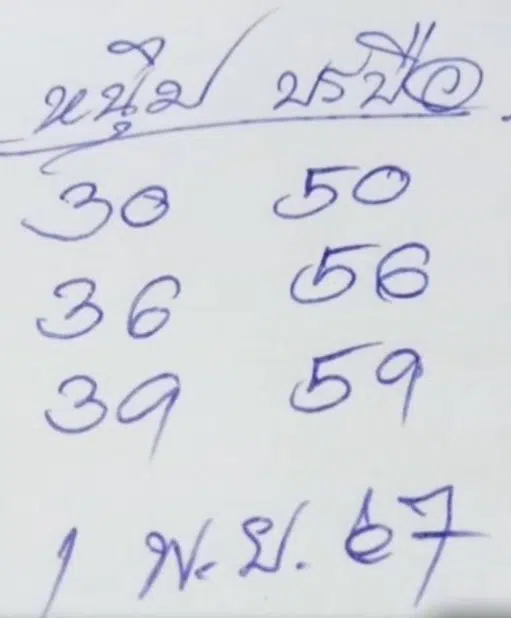 หนุ่ม บรบือ
30 50
36 56
39 59
1 พ.ย. 67